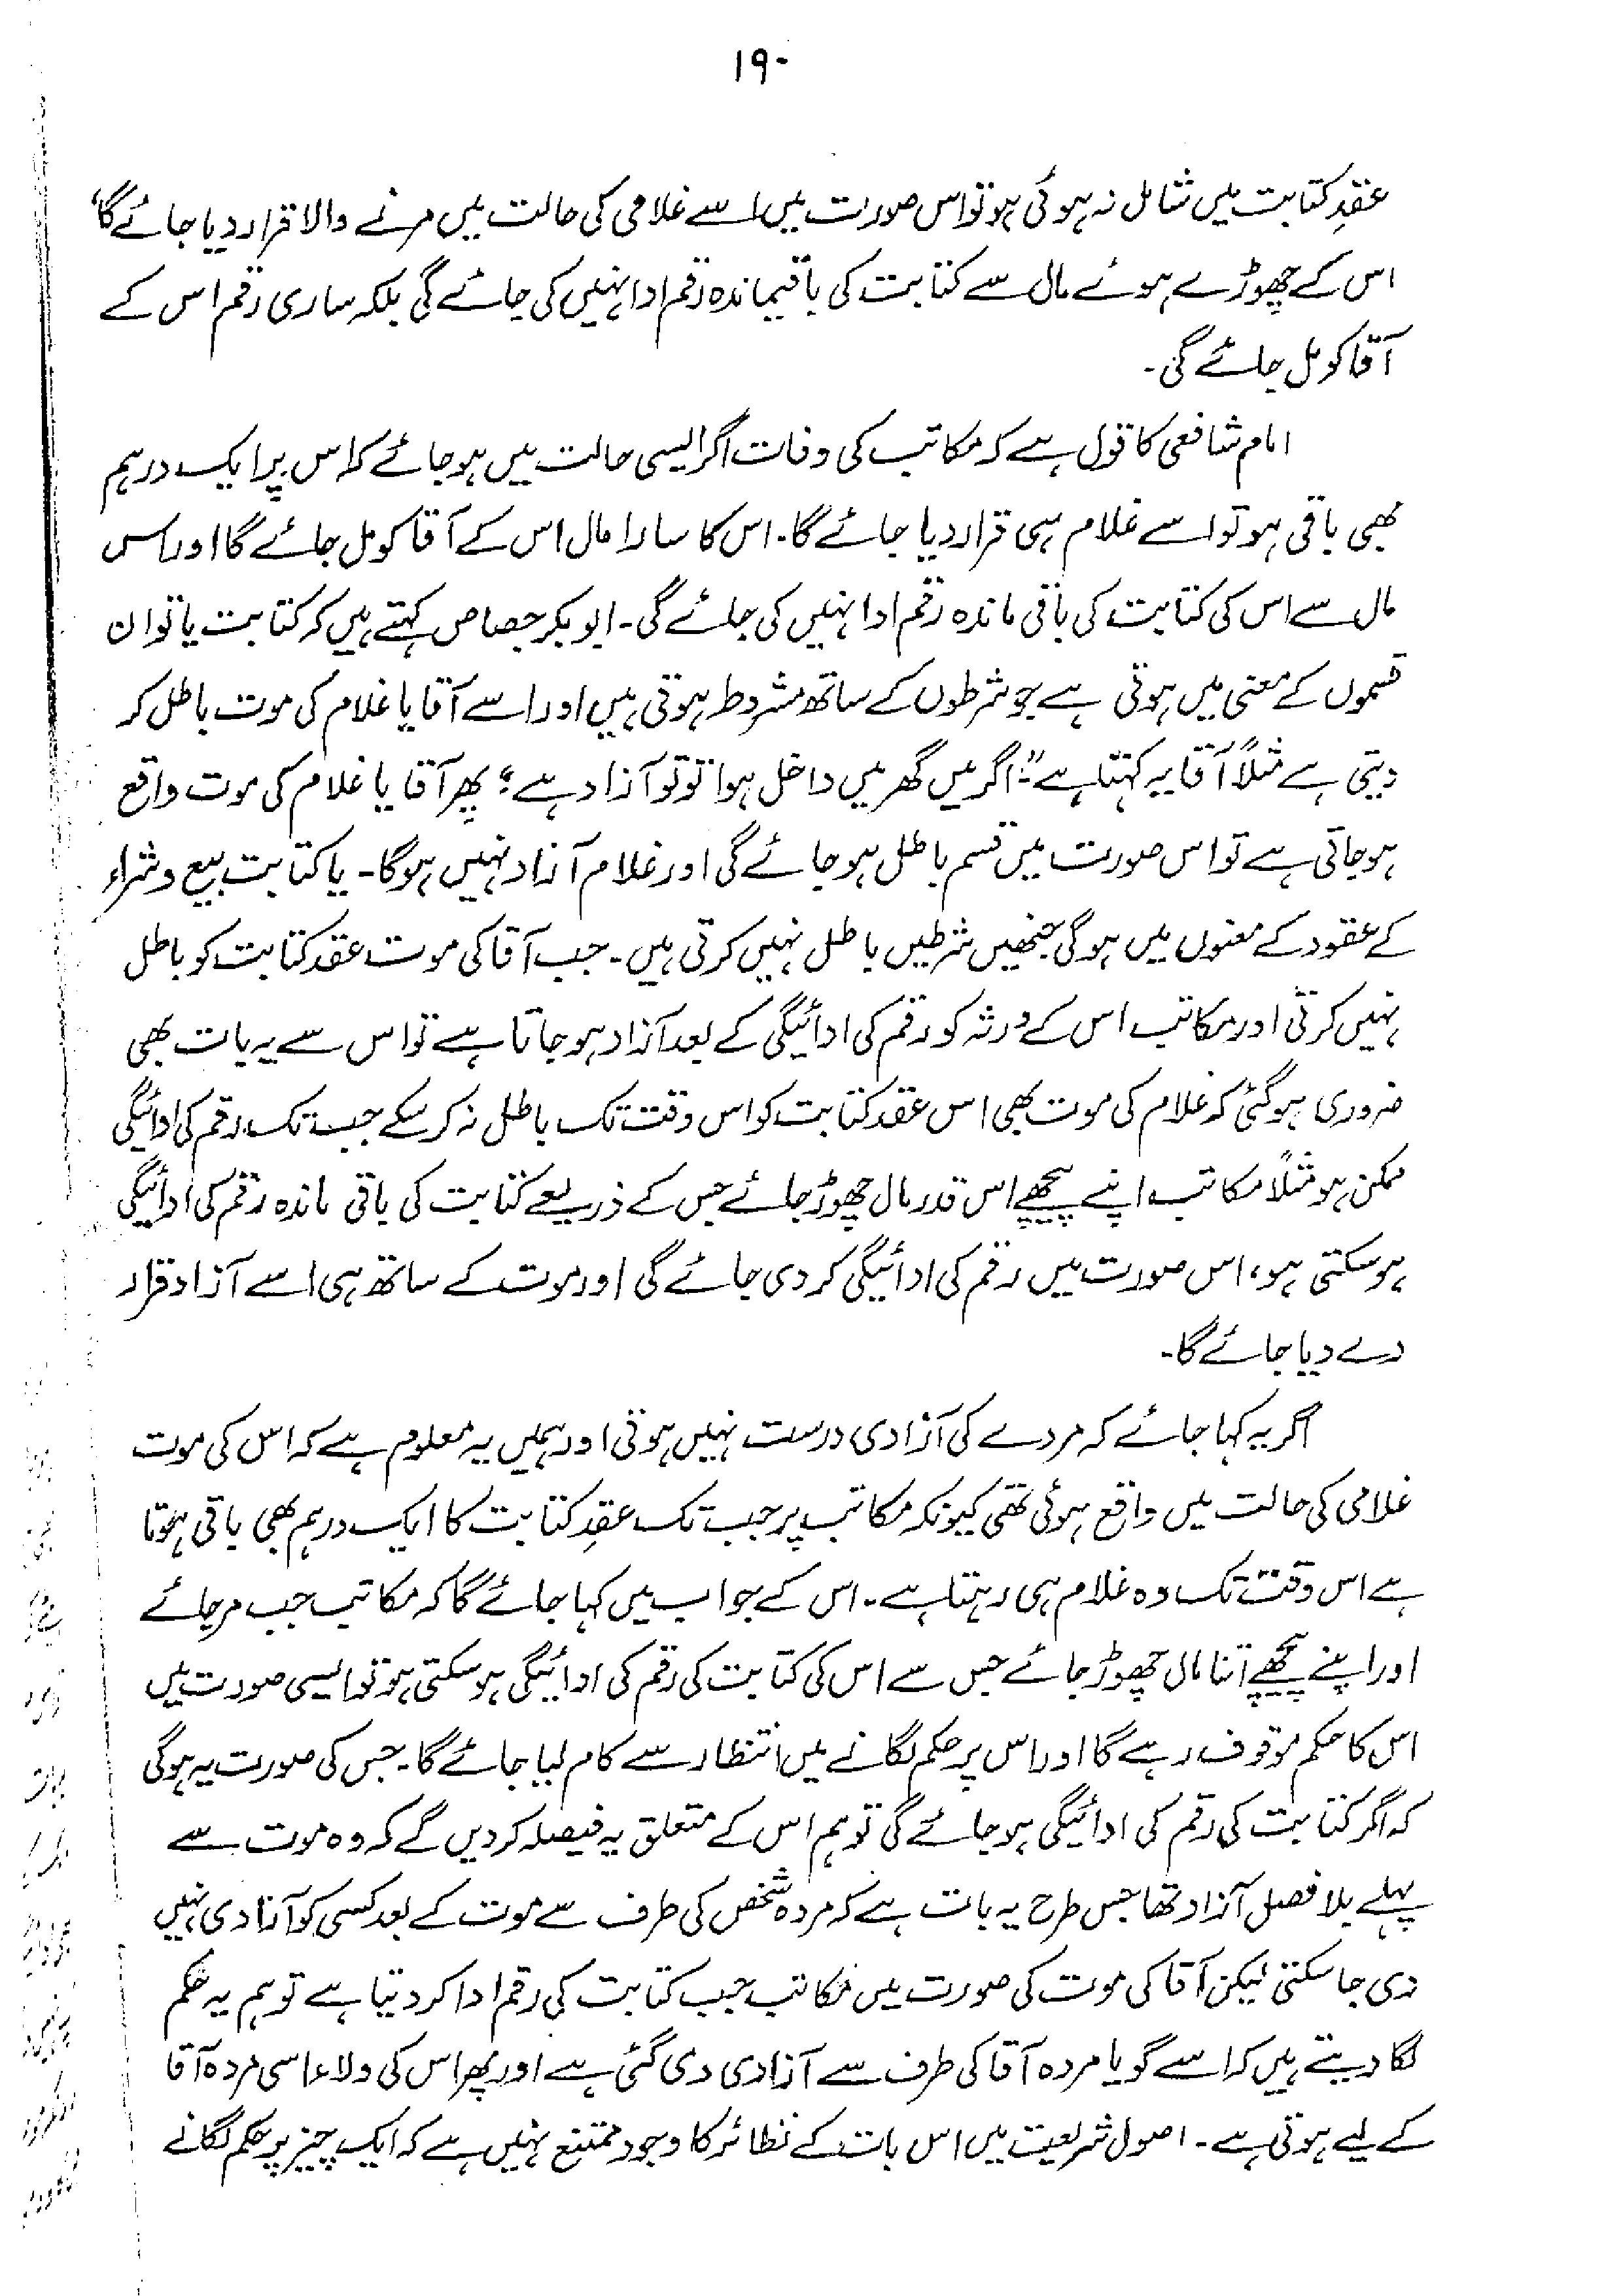 ۱۹۰
عقدِ کتابت میں شامل نہ ہوئی ہو تو اس صورت میں اسے غلامی کی حالت میں مرنے والا قرار دیا جائے گا،
اس کے چھوڑے ہوئے مال سے کتابت کی باقیماندہ رقم ادا نہیں کی جائے گی بلکہ ساری رقم اس کے
آقا کو مل جائے گی۔
امام شافعی کا قول ہے کہ مکاتب کی وفات اگر ایسی حالت میں ہو جائے کہ اس پر ایک درہم
بھی باقی ہو تو اسے غلام ہی قرار دیا جائے گا۔ اس کا سارا مال اس کے آقا کو مل جائے گا اور اس
مال سے اس کی کتابت کی باقی ماندہ رقم ادا نہیں کی جائے گی۔ ابوبکر جصاص کہتے ہیں کہ کتابت یا تو ان
قسموں کے معنی میں ہوتی ہے جو شرطوں کے ساتھ مشروط ہوتی ہیں اور اسے آقا یا غلام کی موت باطل کر
دیتی ہے مثلاً آقا یہ کہتا ہے "اگر میں گھر میں داخل ہوا تو تو آزاد ہے" پھر آقا یا غلام کی موت واقع
ہو جاتی ہے تو اس صورت میں قسم باطل ہو جائے گی اور غلام آزاد نہیں ہوگا۔ یا کتابت بیع و شراء
کے عقود کے معنوں میں ہوگی جنھیں شرطیں باطل نہیں کرتی ہیں۔ جب آقا کی موت عقد کتابت کو باطل
نہیں کرتی اور مکاتب اس کے ورثہ کو رقم کی ادائیگی کے بعد آزاد ہو جاتا ہے تو اس سے یہ بات بھی
ضروری ہو گئی کہ غلام کی موت بھی اس عقد کتابت کو اس وقت تک باطل نہ کر سکے جب تک رقم کی ادائیگی
ممکن ہو مثلاً مکاتب اپنے پیچھے اس قدر مال چھوڑ جائے جس کے ذریعے کتابت کی باقی ماندہ رقم کی ادائیگی
ہو سکتی ہو، اس صورت میں رقم کی ادائیگی کر دی جائے گی اور موت کے ساتھ ہی اسے آزاد قرار
دے دیا جائے گا۔
اگر یہ کہا جائے کہ مردے کی آزادی درست نہیں ہوتی اور ہمیں یہ معلوم ہے کہ اس کی موت
غلامی کی حالت میں واقع ہوئی تھی کیونکہ مکاتب پر جب تک عقدِ کتابت کا ایک درہم بھی باقی ہوتا
ہے اس وقت تک وہ غلام ہی رہتا ہے۔ اس کے جواب میں کہا جائے گا کہ مکاتب جب مر جائے
اور اپنے پیچھے اتنا مال چھوڑ جائے جس سے اس کی کتابت کی رقم کی ادائیگی ہو سکتی ہو تو ایسی صورت میں
اس کا حکم موقوف رہے گا اور اس پر حکم لگانے میں انتظار سے کام لیا جائے گا۔ جس کی صورت یہ ہوگی
کہ اگر کتابت کی رقم کی ادائیگی ہو جائے گی تو ہم اس کے متعلق یہ فیصلہ کر دیں گے کہ وہ موت سے
پہلے بلا فصل آزاد تھا جس طرح یہ بات ہے کہ مردہ شخص کی طرف سے موت کے بعد کسی کو آزادی نہیں
دی جا سکتی لیکن آقا کی موت کی صورت میں مکاتب جب کتابت کی رقم ادا کر دیتا ہے تو ہم یہ حکم
لگا دیتے ہیں کہ اسے گویا مردہ آقا کی طرف سے آزادی دی گئی ہے اور پھر اس کی ولاء اسی مردہ آقا
کے لیے ہوتی ہے۔ اصول شریعت میں اس بات کے نظائر کا وجود ممتنع نہیں ہے کہ ایک چیز پر حکم لگانے